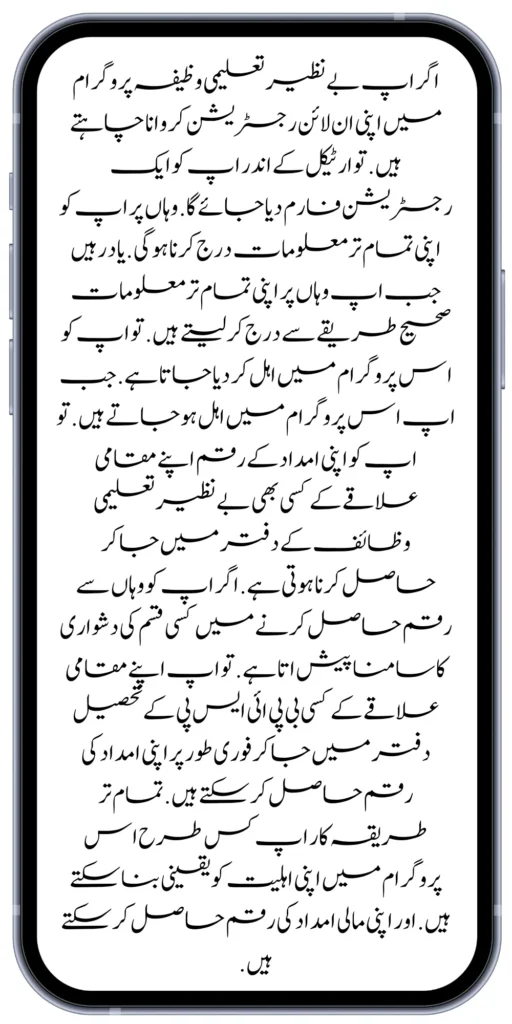 اگر اپ بے نظیر تعلیمی وظیفہ پروگرام
میں اپنی ان لائن رجسٹریشن کروانا چاہتے
ہیں. تو ارٹیکل کے اندر اپ کو ایک
رجسٹریشن فارم دیا جائے گا. وہاں پر اپ کو
اپنی تمام تر معلومات درج کرنا ہوگی. یاد رہیں
جب اپ وہاں پر اپنی تمام تر معلومات
صحیح طریقے سے درج کر لیتے ہیں. تو اپ کو
اس پروگرام میں اہل کر دیا جاتا ہے. جب
اپ اس پروگرام میں اہل ہو جاتے ہیں. تو
اپ کو اپنی امداد کے رقم اپنے مقامی
علاقے کے کسی بھی بے نظیر تعلیمی
وظائف کے دفتر میں جا کر
حاصل کرنا ہوتی ہے. اگر اپ کو وہاں سے
رقم حاصل کرنے میں کسی قسم کی دشواری
کا سامنا پیش اتا ہے. تو اپ اپنے مقامی
علاقے کے کسی بی پی ائی ایس پی کے تحصیل
دفتر میں جا کر فوری طور پر اپنی امداد کی
رقم حاصل کر سکتے ہیں. تمام تر
طریقہ کار اپ کس طرح اس
پروگرام میں اپنی اہلیت کو یقینی بنا سکتے
ہیں. اور اپنی مالی امداد کی رقم حاصل کر سکتے
ہیں.